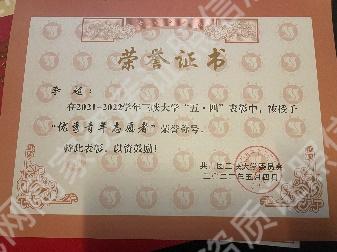 荣誉证书
李超:
在2021-2022学年三峡大学“五·四”表彰中,被授予
“优秀青年志愿者”荣誉称号。
特此表彰,以资鼓励!
共青团三峡大学委员会
二〇二二年五月四日